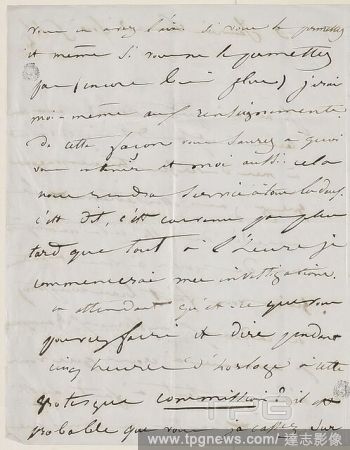 vous en avez l'air. si vous le permettez
et même si vous ne le permettez
pas (encore bien plus) j'irai
moi-même aux renseignements
De cette façon vous saurez à quoi
vous et moi aussi. cela
nous rendra service à tous les deux.
c'est dit, c'est convenu pas plus
tard que tout à l'heure je
commencerai mes investigations.
en attendant qu'est-ce que vous
pouvez faire et dire pendant
cinq heures d'horloge à cette
grotesque commission? il est
probable que vous cassez sur
TPG
www.tpgnews.com / 達志影像